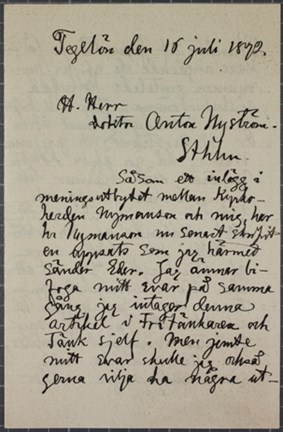 Tegelön den 16 juli 1892.
H. Herr
doktor Anton Nyström.
Sthlm.
Såsom ett inlägg i
meningsutbytet mellan Kyrko-
herden Nymanson och mig, har
hr Nymanson nu senast skrifvit
en uppsats som jag härmed
sänder Eder. Jag ämnar bi-
foga mitt svar på samma
gång jag intager denna
artikel i Fritänkaren och
Tänk Sjelf. Men jemte
mitt svar skulle jag också
gerna vilja ha några ut-